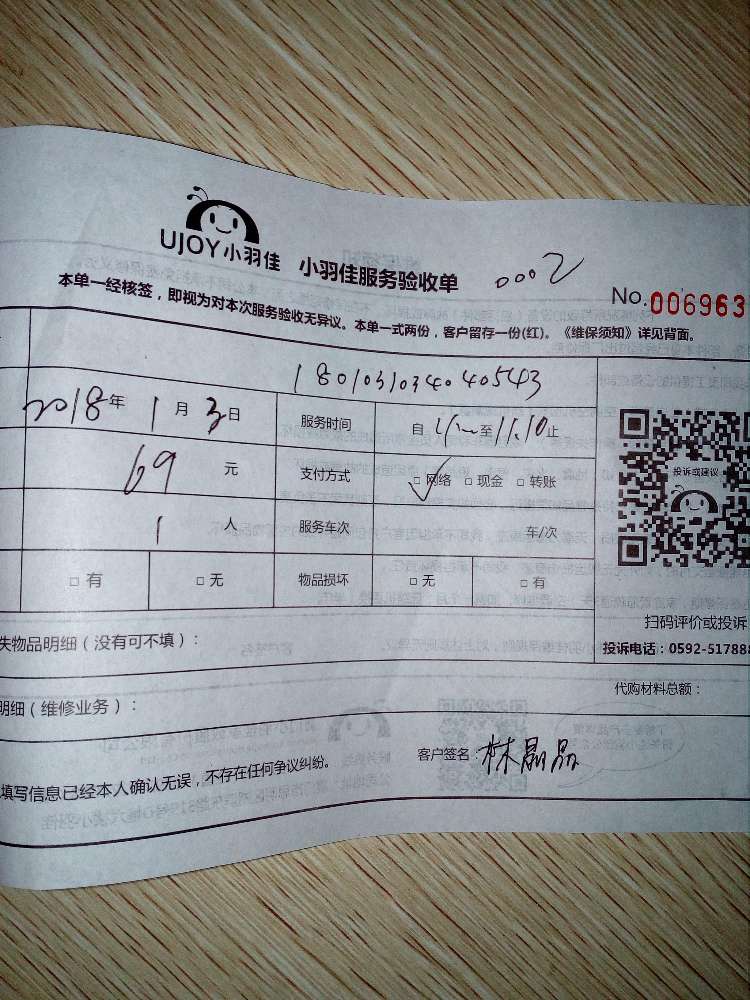 UJOY小羽佳 小羽佳服务验收单 0002
No.006963
本单一经核签，即视为对本次服务验收无异议。本单一式两份，客户留存一份(红)。《维保须知》详见背面。
180103103404040543
2018年1月3日 服务时间 自 至11.10止
69元 支付方式 □网络 □现金 □转账
1人 服务车次 车/次
□有 □无 物品损坏 □无 □有
投诉或建议
扫码评价或投诉
失物品明细（没有可不填）：
投诉电话：0592-517888
代购材料总额：
明细（维修业务）：
填写信息已经本人确认无误，不存在任何争议纠纷。 客户签名：林晶晶